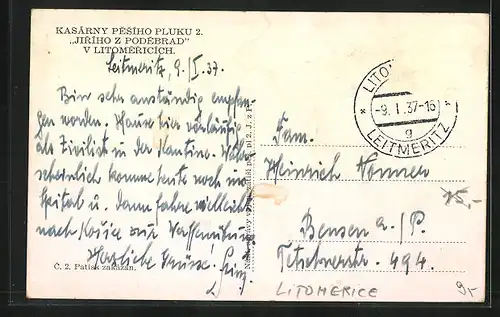 KASÁRNY PĚŠÍHO PLUKU 2.
„JIŘÍHO Z PODĚBRAD"
V LITOMĚŘICÍCH.
Leitmeritz, 9./I. 37.
Bin sehr anständig empfan-
gen worden. Hause hier vorläufig
als Zivilist in der Kantine. Wahr-
scheinlich komme heute noch ins
Spital u. dann fahre vielleicht
nach Košice zur
Herzliche Grüsse.
Č. 2. Patisk zakázán.
LITO
-9. I. 37-16
g
LEITMERITZ
Fam.
Heinrich
15,-
Bensen a./P.
Tetschnerstr. 494.
LITOMERICE
9,-